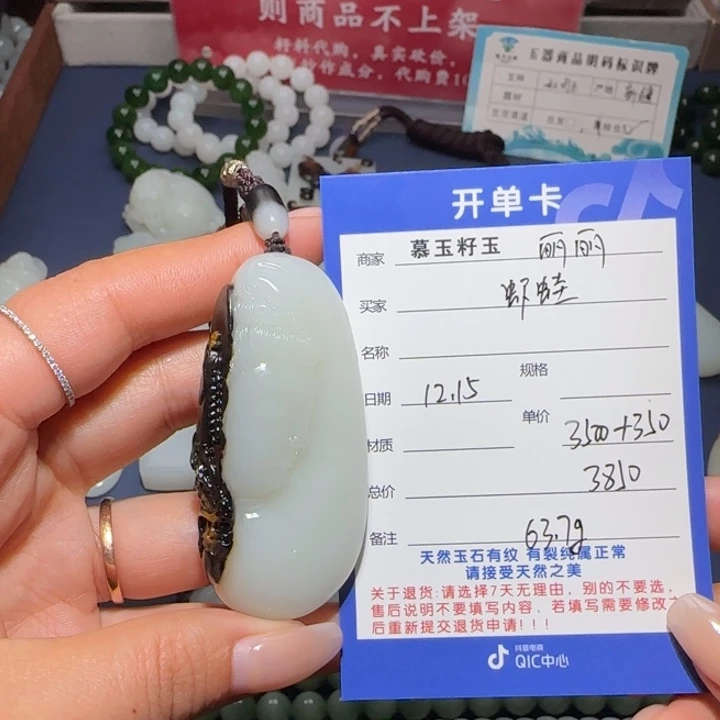 则商品不上架
籽料代购，真实砍价，
玉器商品明码标识牌
开单卡
商家 慕玉籽玉 丽丽
买家 虾蛙
名称
规格
日期 12.15
单价 3500+350
材质
总价 3850
备注 63.7g
天然玉石有纹 有裂纯属正常
请接受天然之美
关于退货:请选择7天无理由，别的不要选，
售后说明不要填写内容，若填写需要修改之
后重新提交退货申请!!!
抖音电商
QIC中心